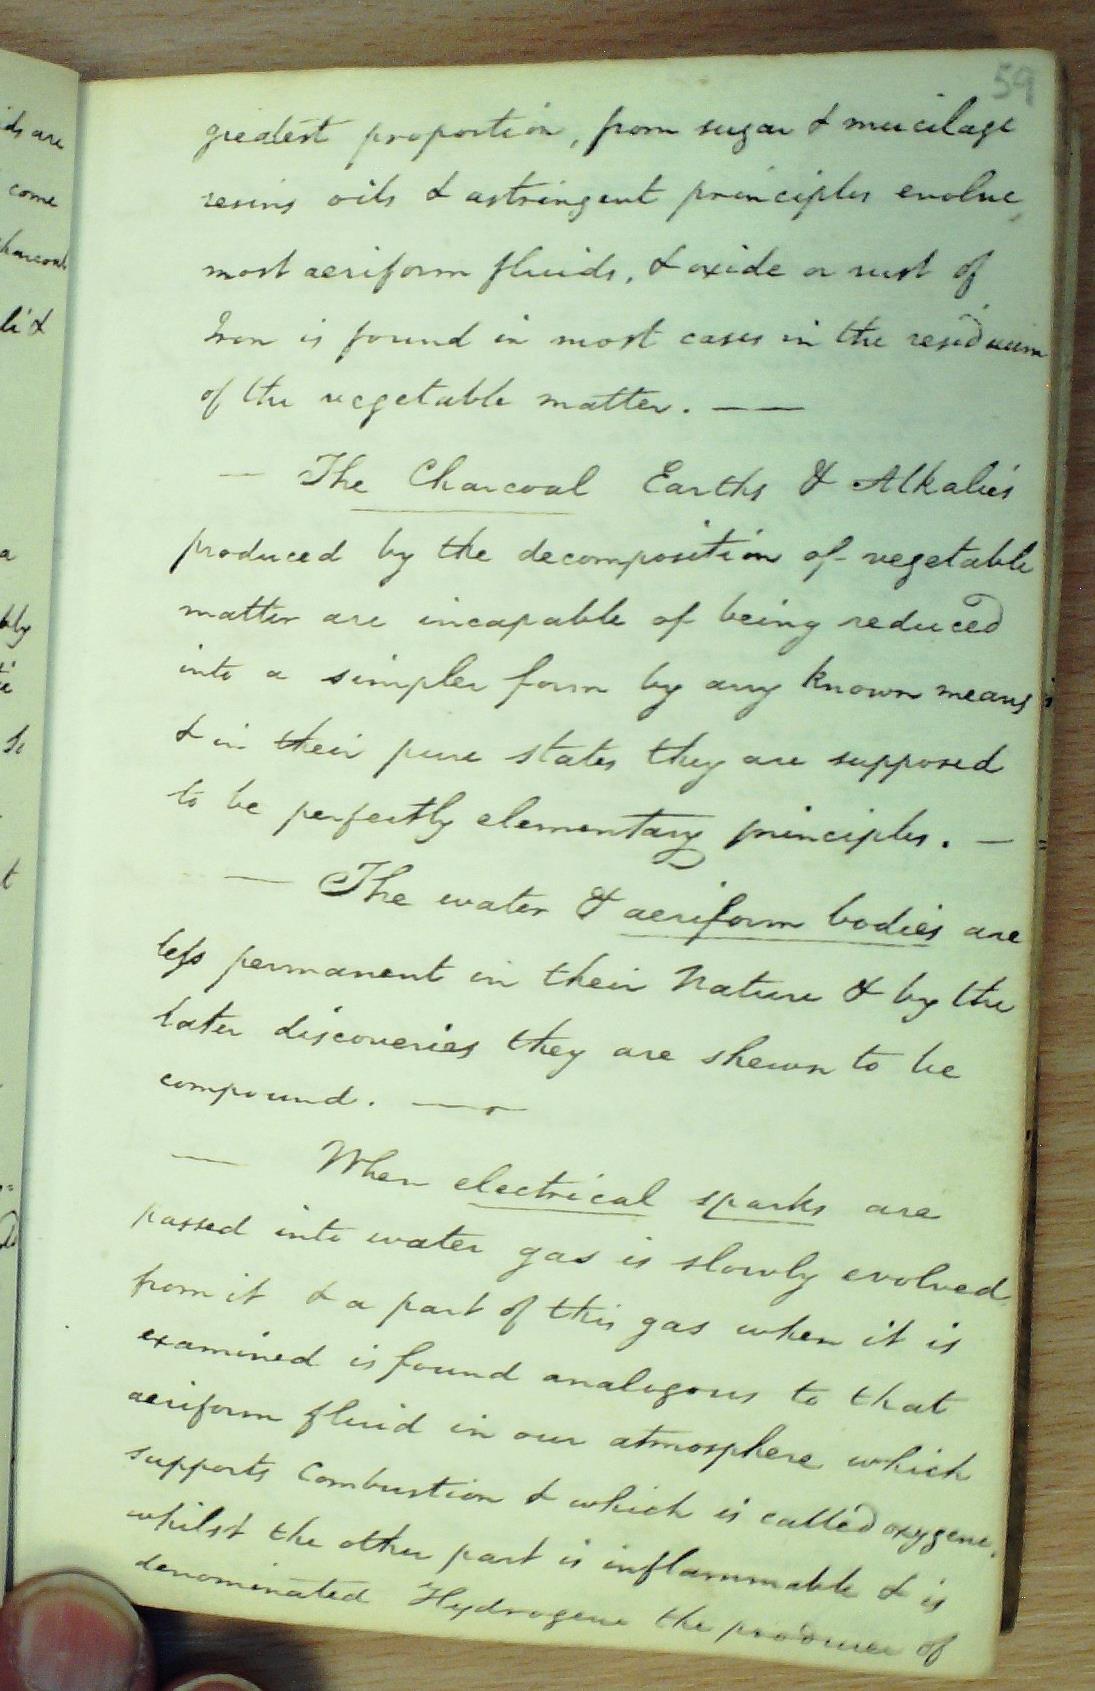 59
ids are
come
charcoal
greatest proportion, from sugar & mucilage
resins oils & astringent principles evolve,
most aeriform fluids, & oxide or rust of
Iron is found in most cases in the residuum
of the vegetable matter. — —
— The Charcoal Earths & Alkalies
produced by the decomposition of vegetable
matter are incapable of being reduced
into a simpler form by any known means
& in their pure states they are supposed
to be perfectly elementary principles. —
— The water & aeriform bodies are
less permanent in their Nature & by the
later discoveries they are shewn to be
compound. —
— When electrical sparks are
passed into water gas is slowly evolved
from it & a part of this gas when it is
examined is found analogous to that
aeriform fluid in our atmosphere which
supports Combustion & which is called oxygene,
whilst the other part is inflammable & is
denominated Hydrogene the producer of